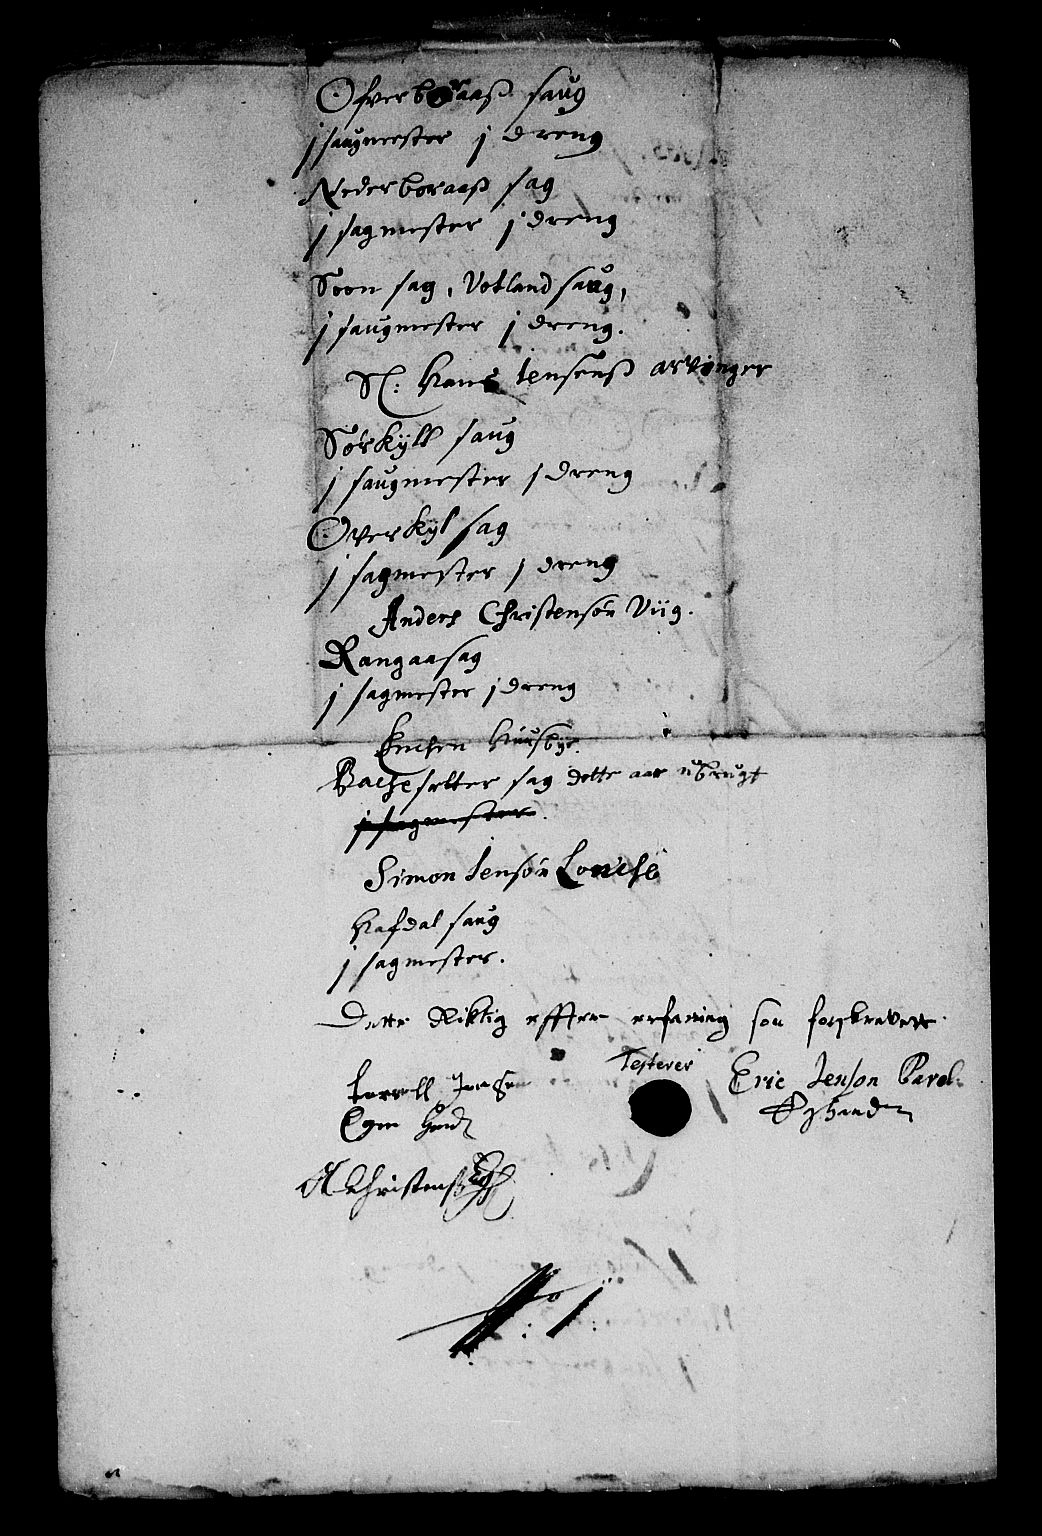 Ofver boraaß saug
j saugmester j dreng
Neder boraaß sag
j sagmester j dreng
Soon sag, Votland saug,
j saugmester j dreng.
Sl: Hans Jensenß arvinger
Sørkyll saug
j saugmester j dreng
Overkyl sag
j sagmester j dreng
Anders Christensøn Viig.
Rangaasag
j sagmester j dreng
Bachesetter sag dette aar ubrugt
j sagmester
Simon Jensøn
Hafdal saug
j sagmester.
Dette Riktig effter erfaring som forskrevett
Testerer
Eric Jenson
Egen Hand
Christenß